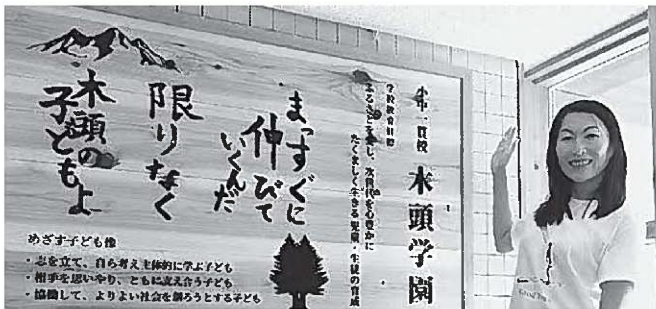 小中一貫校 木頭学園
学校教育目標
ふるさとを愛し、次世代を心豊かに
たくましく生きる児童・生徒の育成
まっすぐに
伸びて
いくんだ
限りなく
木頭の
子どもよ
めざす子ども像
・志を立て、自ら考え主体的に学ぶ子ども
・相手を思いやり、ともに支え合う子ども
・協働して、よりよい社会を創ろうとする子ども